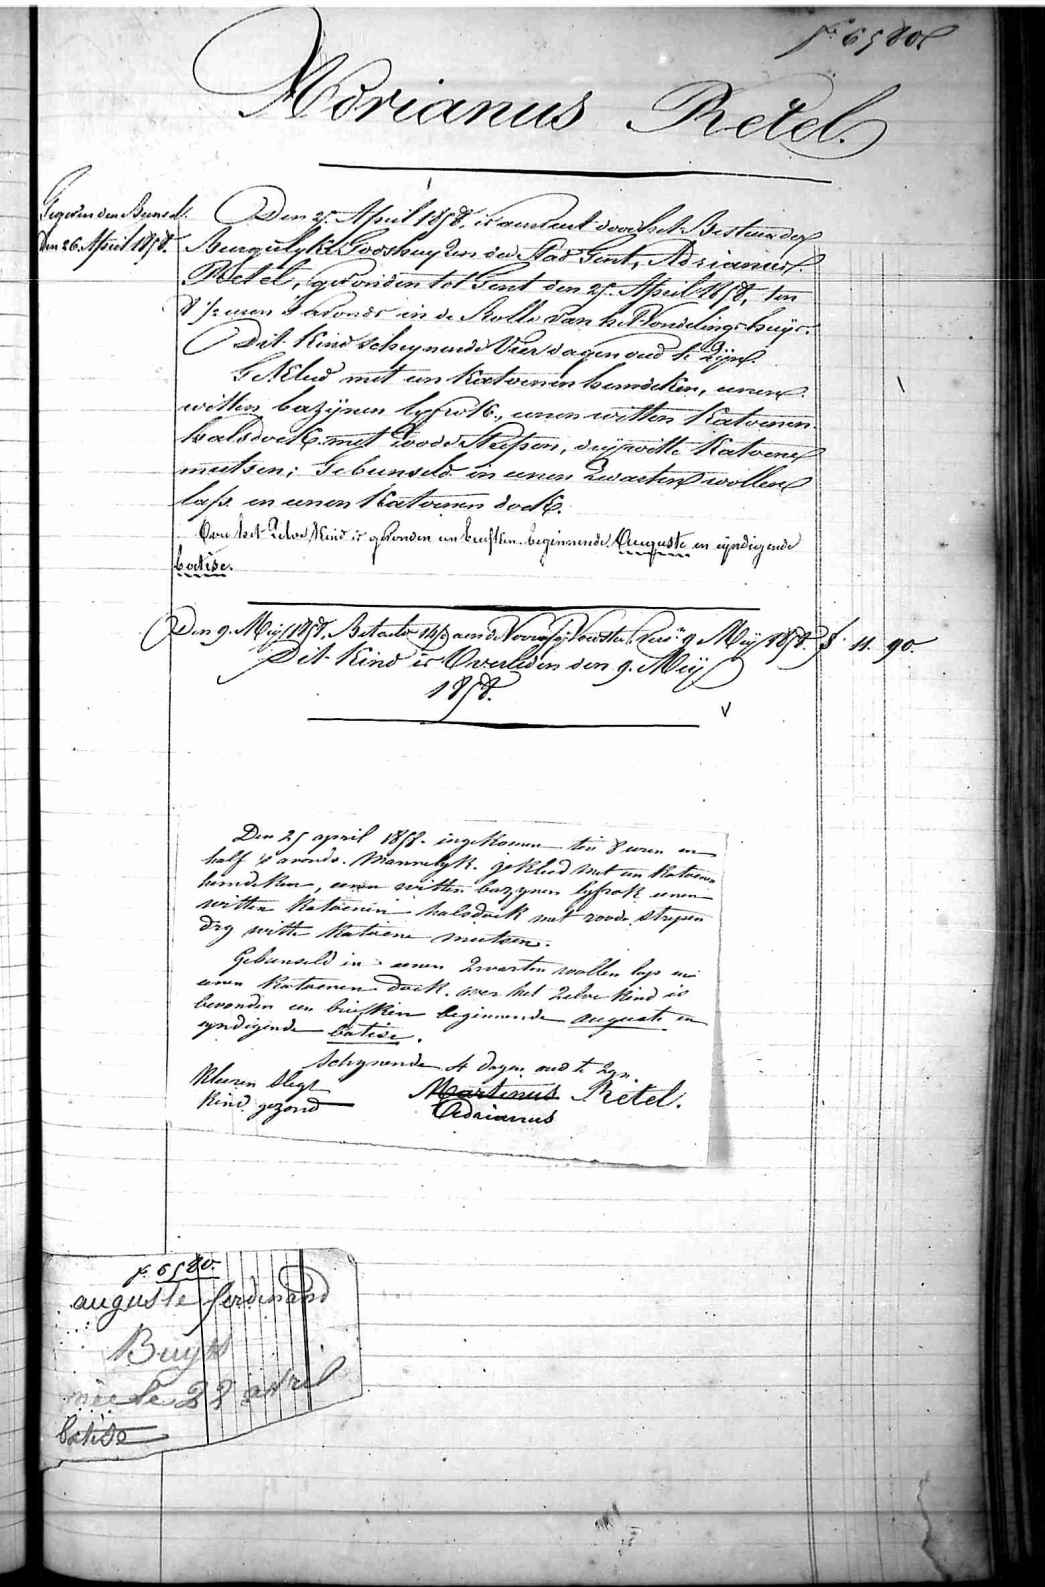 f. 6580
Adrianus Retel.
Gegeven den Bunsel.
den 26 April 1858.
Den 25 April 1858, is aenvaert door het Bestuur der
Burgelyke Godshuyzen der Stad Gent, Adrianus
Retel, gevonden tot Gent den 25 April 1858, ten
8 1/2 uren 's avonds in de Rolle van het Vondelinghuys.
Dit Kind schynende Vier dagen oud te Zyn.
Gekleed met een Katoenen hemdeken, eenen
witten bazynen lyfrok, eenen witten Katoenen
halsdoek met Roode Strepen, dry witte Katoene
mutsen; Gebunseld in eenen Zwarten wollen
lap en eenen Katoenen doek.
Over het Zelve Kind is gevonden een briefken beginnende Auguste en eyndigende
batise.
Den 9. Mey 1858. Betaelt aen de Voorsz. Voedster 9 Mey 1858. f. 11. 90.
Dit Kind is Overleden den 9. Mey
1858.
Den 25 april 1858. ingekomen ten 8 uren en
half 's avonds. Mannelyk. gekleed met een Katoene
hemdeken, eenen witten bazynen lyfrok eenen
witten Katoenen halsdoek met roode strepen
dry witte Katoene mutsen.
Gebunseld in eenen Zwarten wollen lap en
eenen Katoenen doek. over het Zelve Kind is
bevonden een briefken beginnende auguste en
eyndigende batise.
Schynende 4 dagen oud te Zyn.
Kleeren Slegt
Kind gezond
Martinus Retel.
Adrianus
f. 6580.
auguste ferdinand
Buyss
née le 22 avril
batise